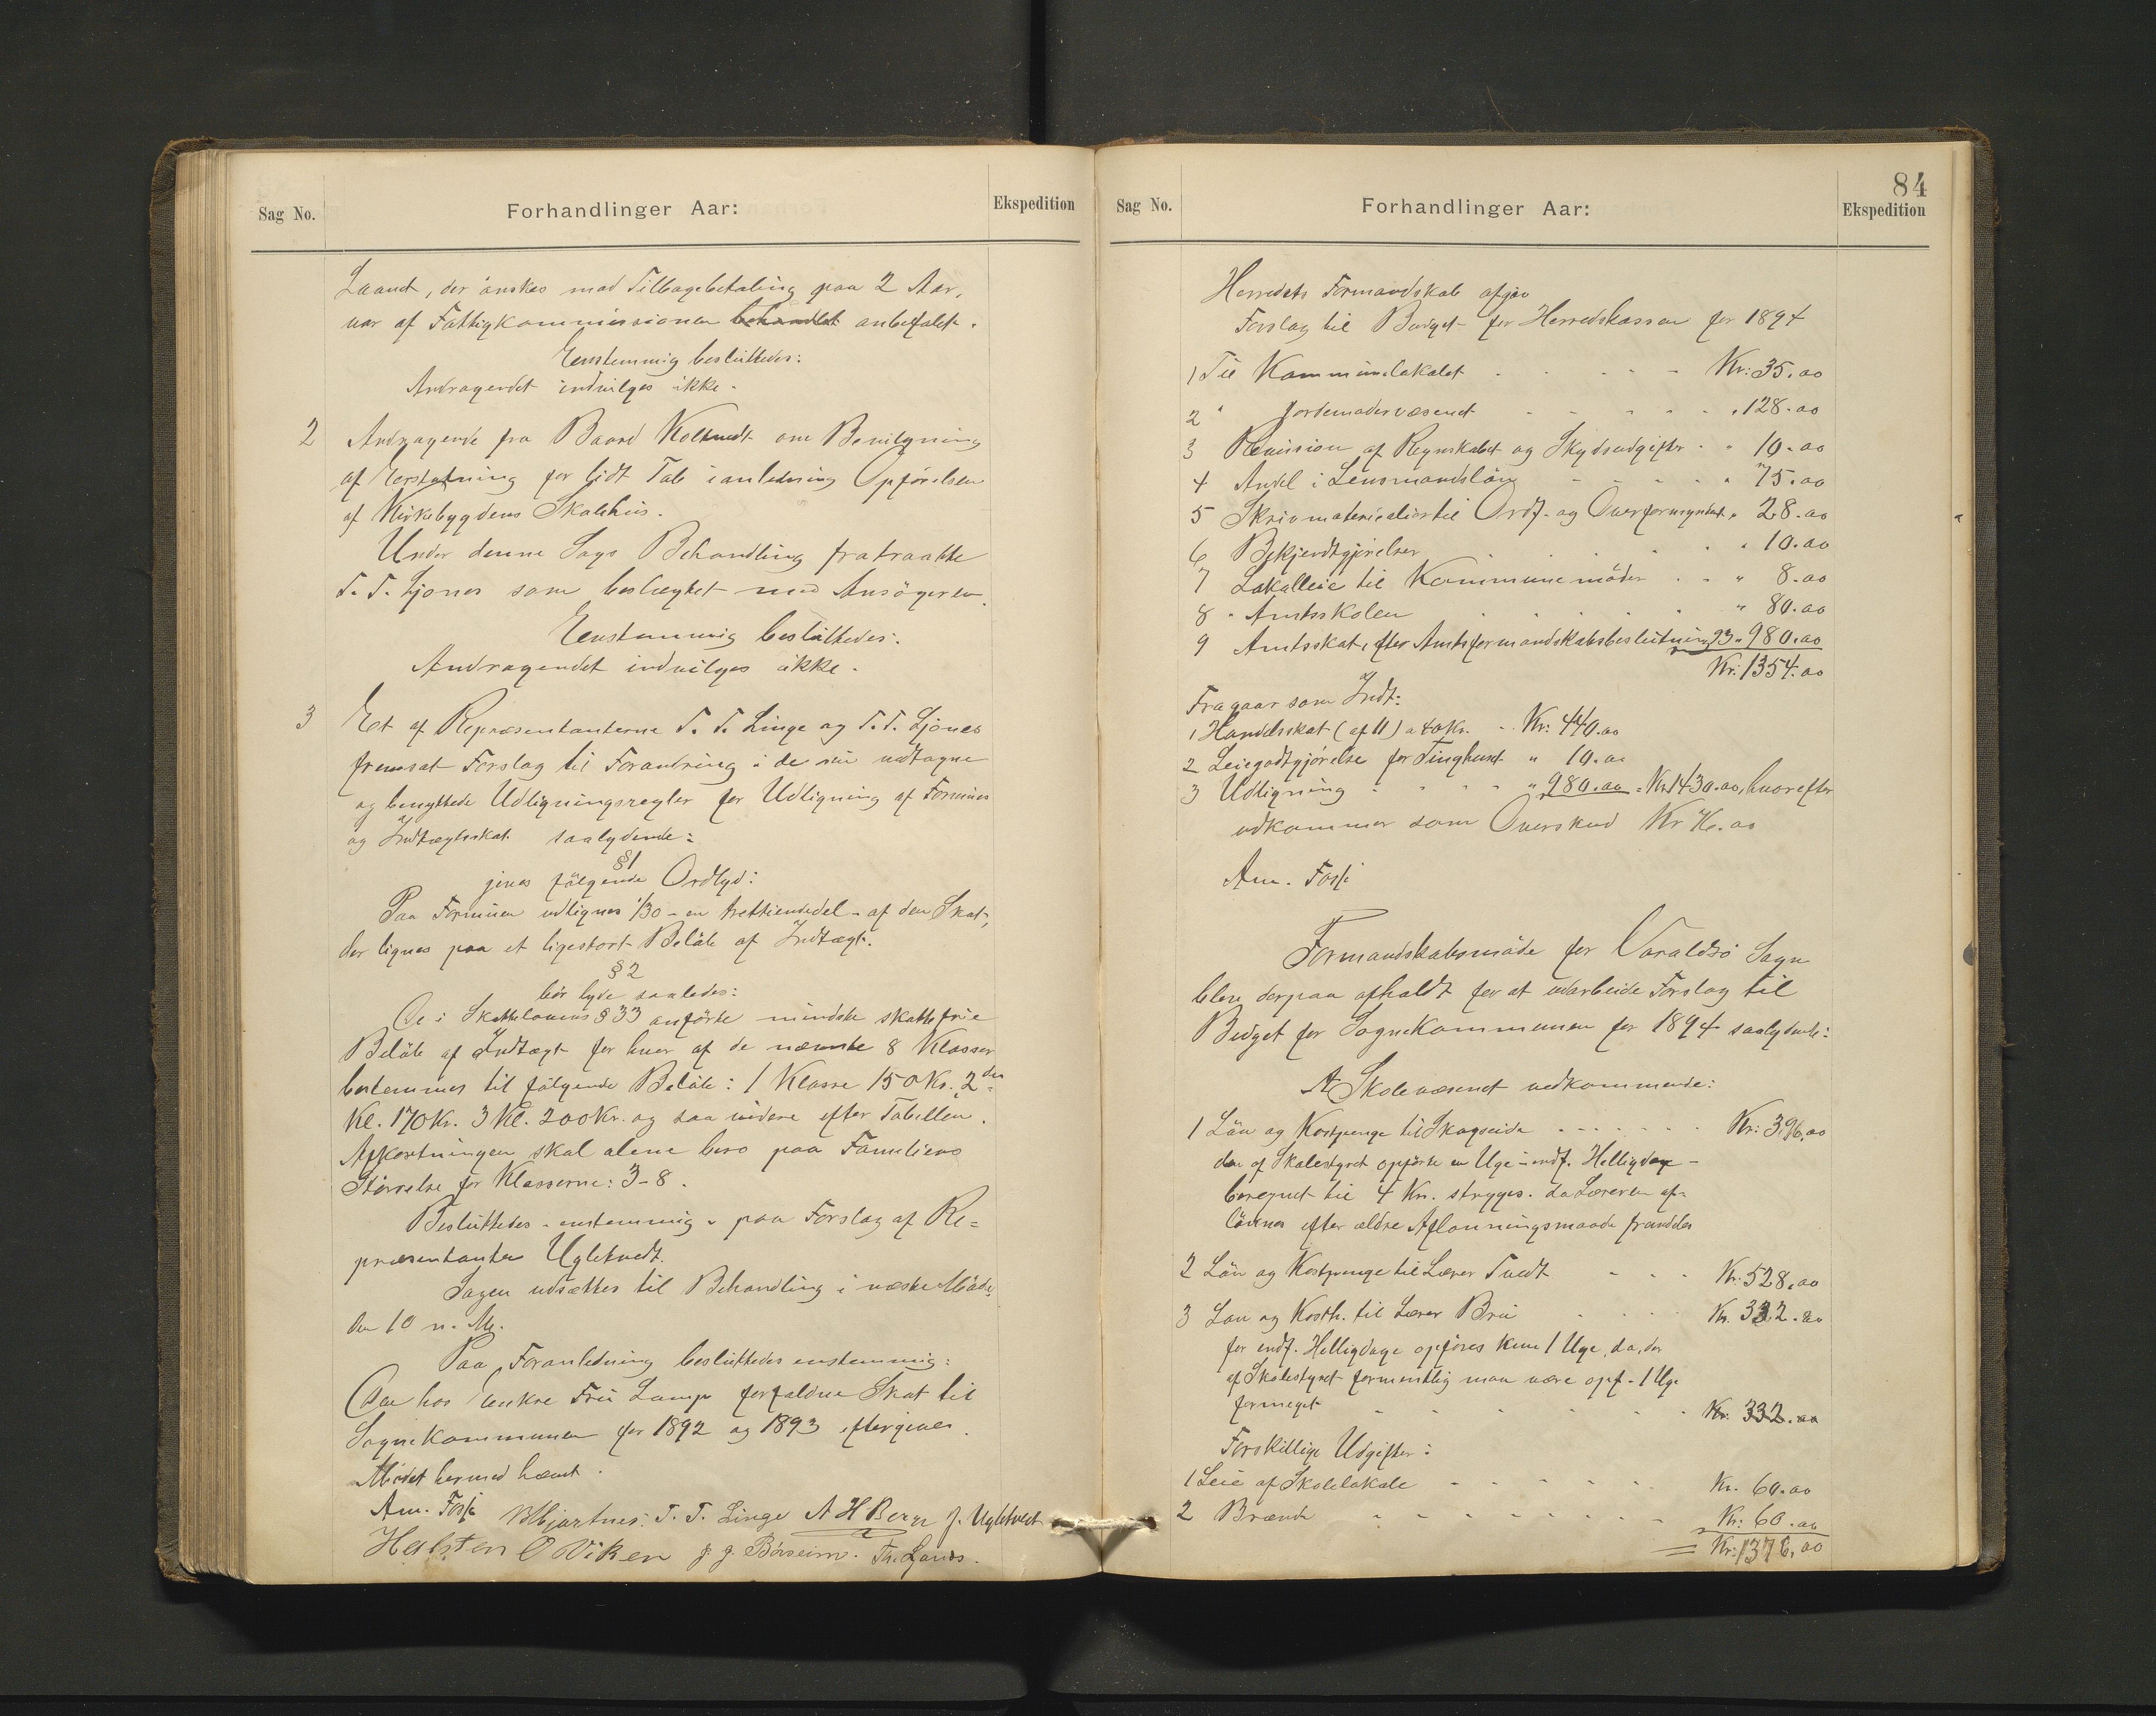 Sag No.
Forhandlinger Aar:
Ekspedition
Laanet, der ønskes mod Tilbagebetaling paa 2 Aar,
var af Fattigkommissionen behandlet anbefalet.
Enstemmig besluttedes:
Andragendet indvilges ikke.
2 Andragende fra Baard Koltvedt om Bevilgning
af Erstatning for lidt Tab i anledning Opførelsen
af Kirkebygdens Skolehus.
Under denne Sags Behandling fratraadte
T. T. Ljones som beslægtet med Ansøgeren.
Enstemmig besluttedes:
Andragendet indvilges ikke.
3 Et af Repræsentanterne T. T. Linge og T. T. Ljones
fremsat Forslag til Forandring i de nu vedtagne
og benyttede Udligningsregler for Udligning af Formues
og Indtægtsskat saalydende:
§ 1
gives følgende Ordlyd:
Paa Formuen udlignes 1/30 - en trettiendedel - af den Skat,
der lignes paa et ligestort Beløb af Indtægt.
§ 2
bør lyde saaledes:
De i Skattelovens § 33 anførte mindste skattefrie
Beløb af Indtægt for hver af de nævnte 8 Klasser
bestemmes til følgende Beløb: 1 Klasse 150 Kr. 2den
Kl. 170 Kr. 3 Kl. 200 Kr. og saa videre efter Tabellen.
Afkortningen skal alene bero paa Familiens
Størrelse for Klasserne: 3-8.
Besluttedes - enstemmig - paa Forslag af Re=
præsentanten Ugletvedt.
Sagen udsættes til Behandling i næste Møde,
den 10 n. M.
Paa Foranledning besluttedes enstemmig:
Den hos Enkre Fru Lamp forfaldne Skat til
Sognekommunen for 1892 og 1893 eftergives.
Mødet hermed hævet.
Am. Fosse Mhjartnes. T. T. Linge A H Berge J. Ugletvedt
Halsten O Viken J. J. Børseim. Th. Ljones.
84
Sag No.
Forhandlinger Aar:
Ekspedition
Herredets Formandskab afgav
Forslag til Budget for Herredskassen for 1894
1 Til Kommunelokalet - - - Kr: 35.00
2 " Jordemodervæsenet - - - " 128.00
3 Revision af Regnskabet og Skydsudgifter - " 10.00
4 Andel i Lensmandsløn - - - " 75.00
5 Skrivmaterialier til Ordf. og Overformynderi " 28.00
6 Bekjendtgjørelser - - - " 10.00
7 Lokalleie til Kommunemøder - - " 8.00
8 " Amtsskolen - - - " 80.00
9 Amtsskat, efter Amtsformandskabsbeslutning 93 " 980.00
Kr: 1354.00
Fragaar som Indt:
1 Handelsskat (af 11) a 40 Kr. - Kr: 440.00
2 Leiegodtgjørelse for Tinghuset " 10.00
3 Udligning - - - " 980.00 = Kr 1430.00, hvorefter
udkommer som Overskud Kr 76.00
Am. Fosse
Formandskabsmøde for Varaldsø Sogn
blev derpaa afholdt for at udarbeide Forslag til
Budget for Sognekommunen for 1894 saalydende:
A Skolevæsenet vedkommende:
1 Løn og Kostpenge til Skogseide - - - Kr: 396,00
den af Skolestyret opførte en Uge - indf. Helligdage -
beregnet til 4 Kr. stryges. da Læreren af-
lønnes efter ældre Aflønningsmaade fremdeles
2 Løn og Kostpenge til Lærer Tvedt - - - Kr: 528,00
3 Løn og Kosth. til Lærer Bru - - - Kr. 332.00
for indf. Helligdage opføres kun 1 Uge, da, der
af Skolestyret formentlig maa være opf. 1 Uge
formeget - - - Kr: 332.00
Forskillige Udgifter:
1 Leie af Skolelokale - - - Kr. 60.00
2 Brænde - - - Kr: 60.00
= Kr: 1376,00